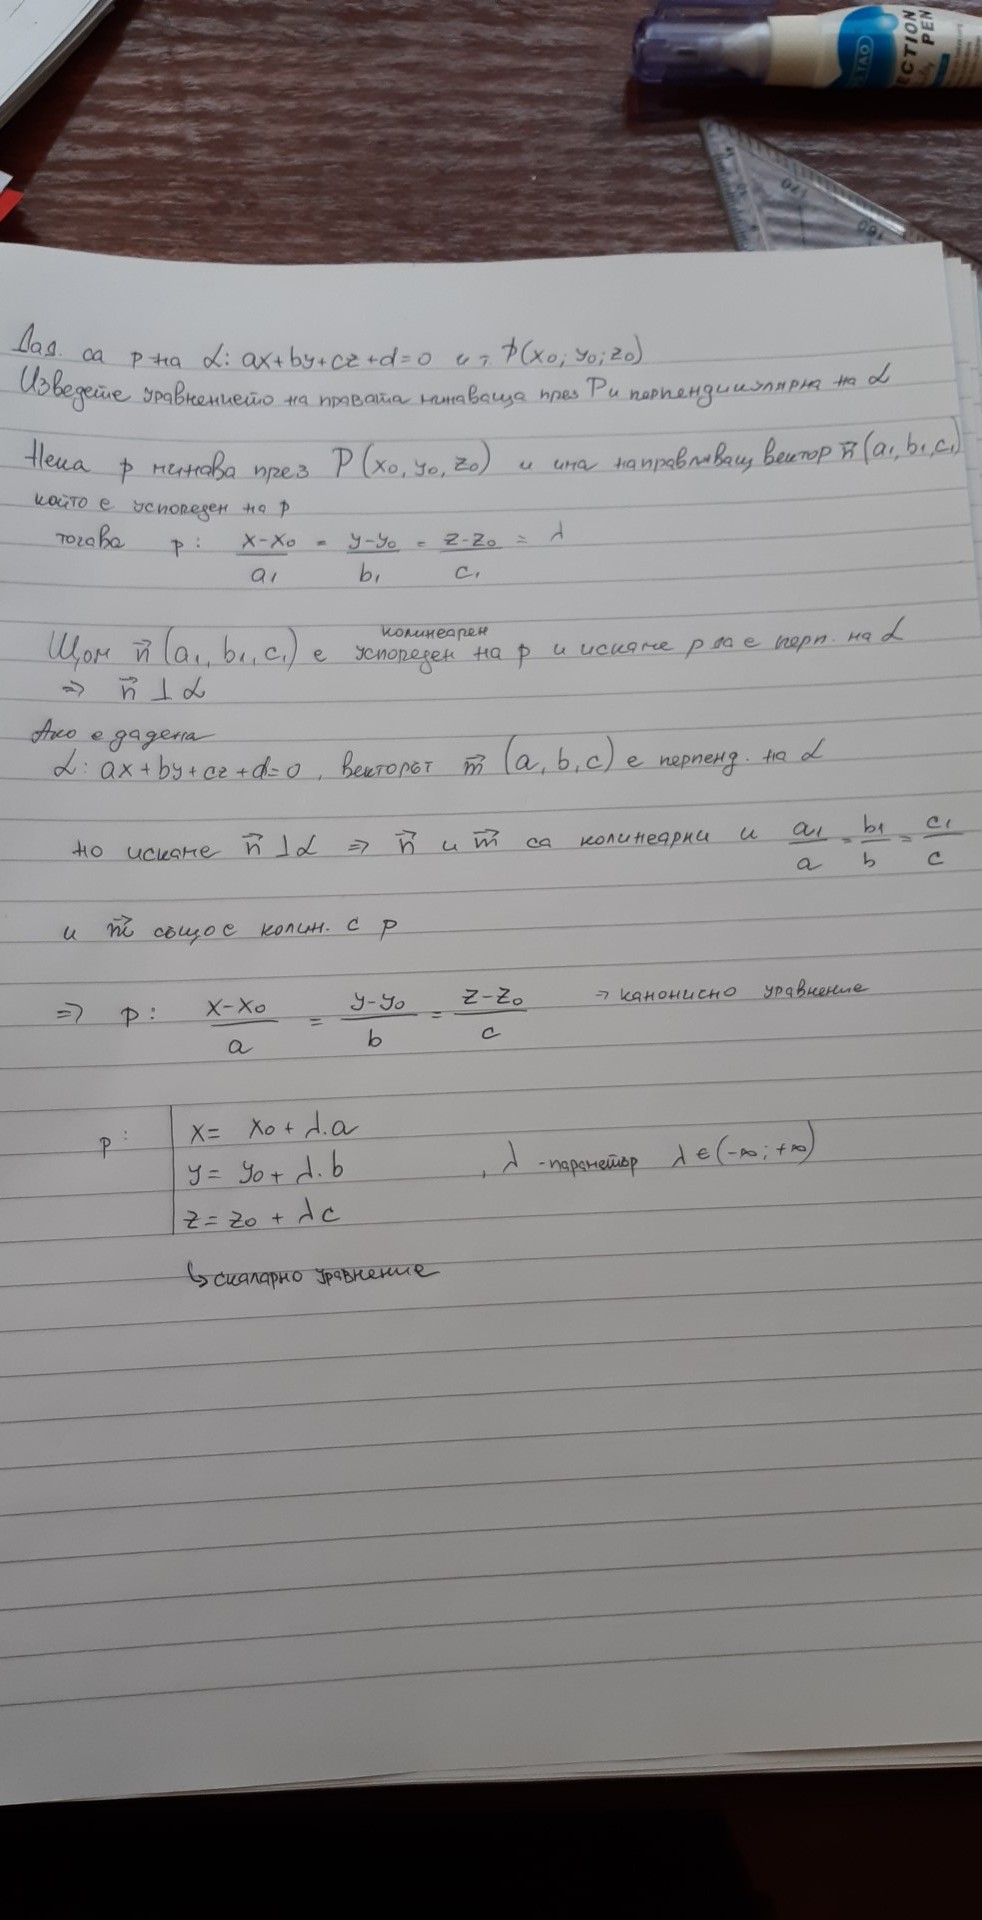 ECTION
PEN
TAO
120
160
Дад. са р-на α: ax+by+cz+d=0 и т. P(x0; y0; z0)
Изведете уравнението на правата минаваща през P и перпендикулярна на α
Нека p минава през P(x0, y0, z0) и има направляващ вектор n⃗(a1, b1, c1)
който е успореден на p
тогава p: (x-x0)/a1 = (y-y0)/b1 = (z-z0)/c1 = λ
колинеарен
Щом n⃗(a1, b1, c1) е успореден на p и искаме p да е перп. на α
⇒ n⃗ ⊥ α
Ако е дадена
α: ax+by+cz+d=0, векторът m⃗ (a, b, c) е перпенд. на α
но искаме n⃗ ⊥ α ⇒ n⃗ и m⃗ са колинеарни и a1/a = b1/b = c1/c
и m⃗ също е колин. с p
⇒ p: (x-x0)/a = (y-y0)/b = (z-z0)/c → канонисно уравнение
p: x= x0 + λ.a
y= y0 + λ.b , λ -параметър λ∈(-∞; +∞)
z= z0 + λc
↳ скаларно уравнение